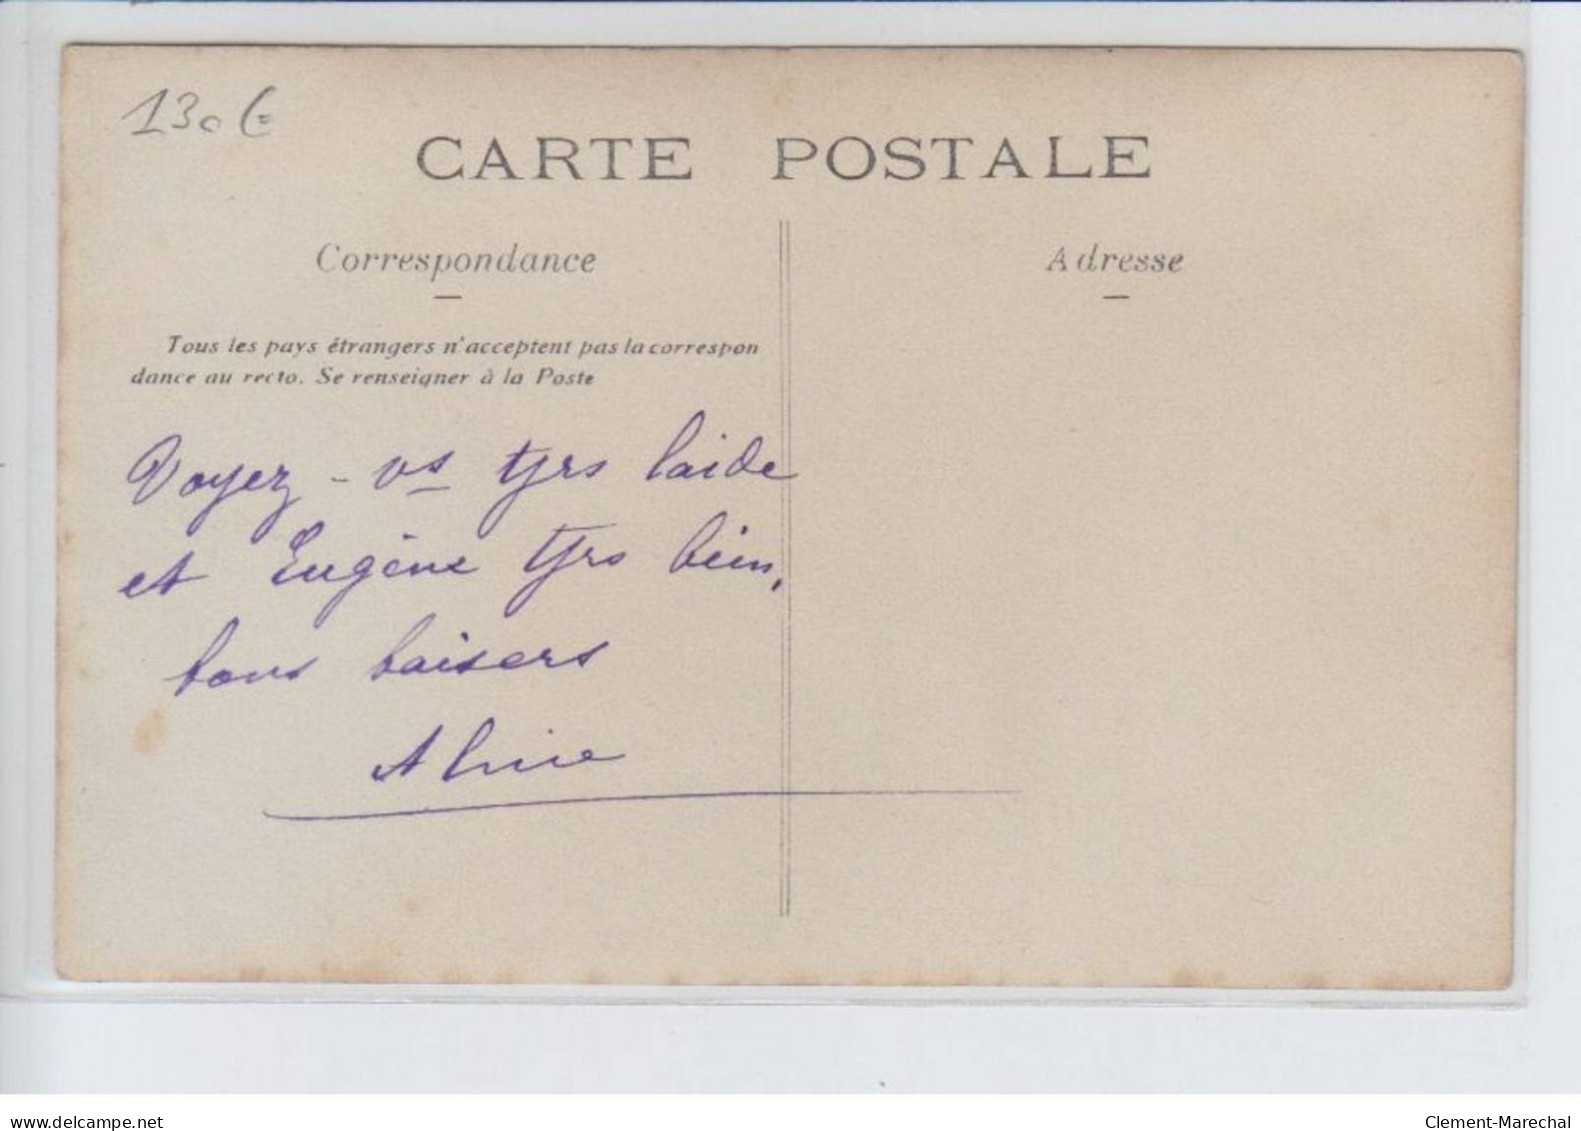 130€
CARTE POSTALE
Correspondance
Adresse
Tous les pays étrangers n'acceptent pas la correspon
dance au recto. Se renseigner à la Poste
Voyez-vs tjrs laide
et Eugène tjrs bien,
bons baisers
Aline
www.delcampe.net
Clement-Marechal